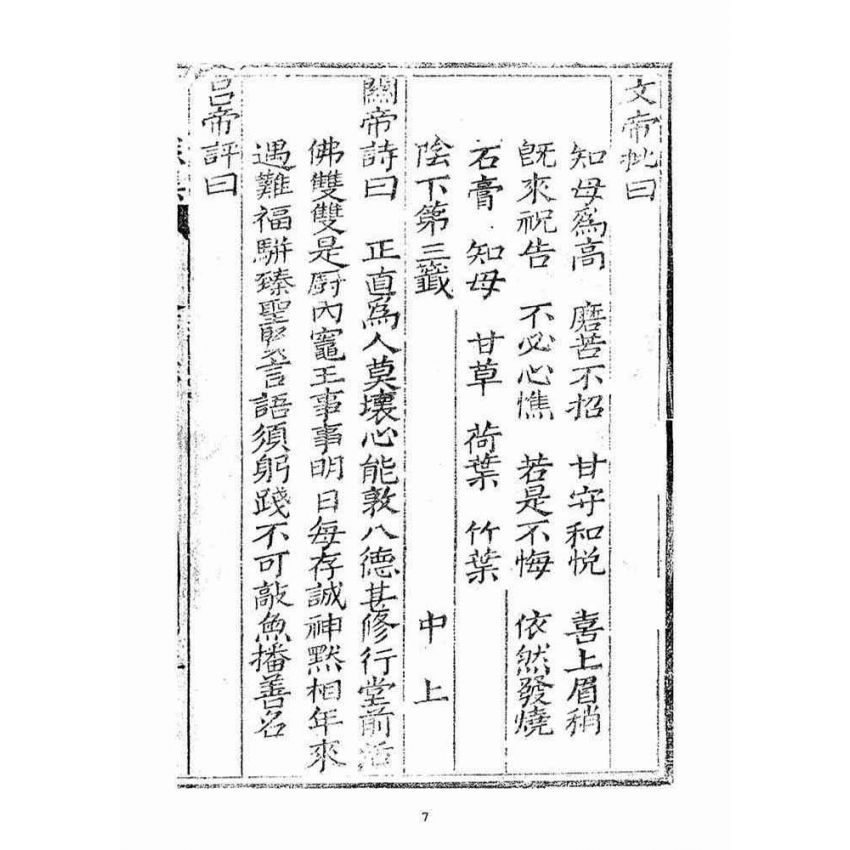 文帝批曰
知母為高　磨苦不招　甘守和悅　喜上眉稍
旣來祝告　不必心憔　若是不悔　依然發燒
石膏　知母　甘草　荷葉　竹葉
陰下第三籤　中上
關帝詩曰　正直爲人莫壞心能敦八德甚修行堂前活
佛雙雙是廚內竈王事事明日每存誠神黙相年來
遇難福駢臻聖賢言語須躬踐不可敲魚播善名
呂帝評曰
7